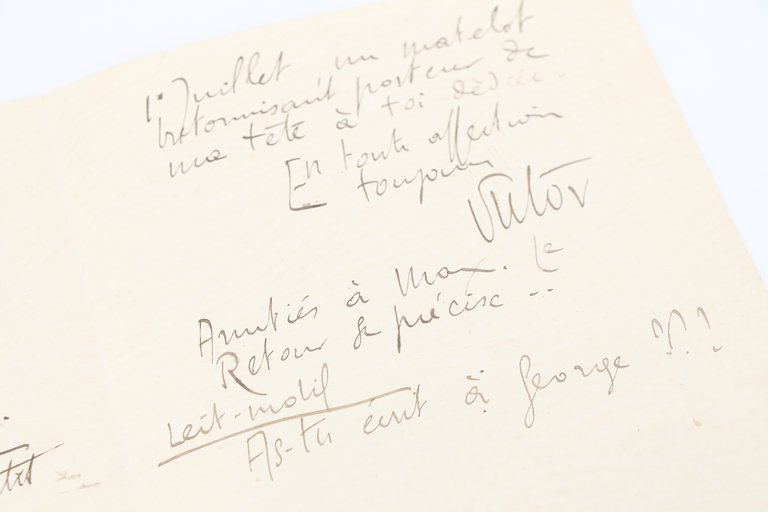 1er Juillet un matelot
porteur de
ma tête à toi dédiée.
En toute affection
toujours
Victor
Amitiés à Max. Le
Retour se précise ..
Leit-motif
As-tu écrit à George !!!